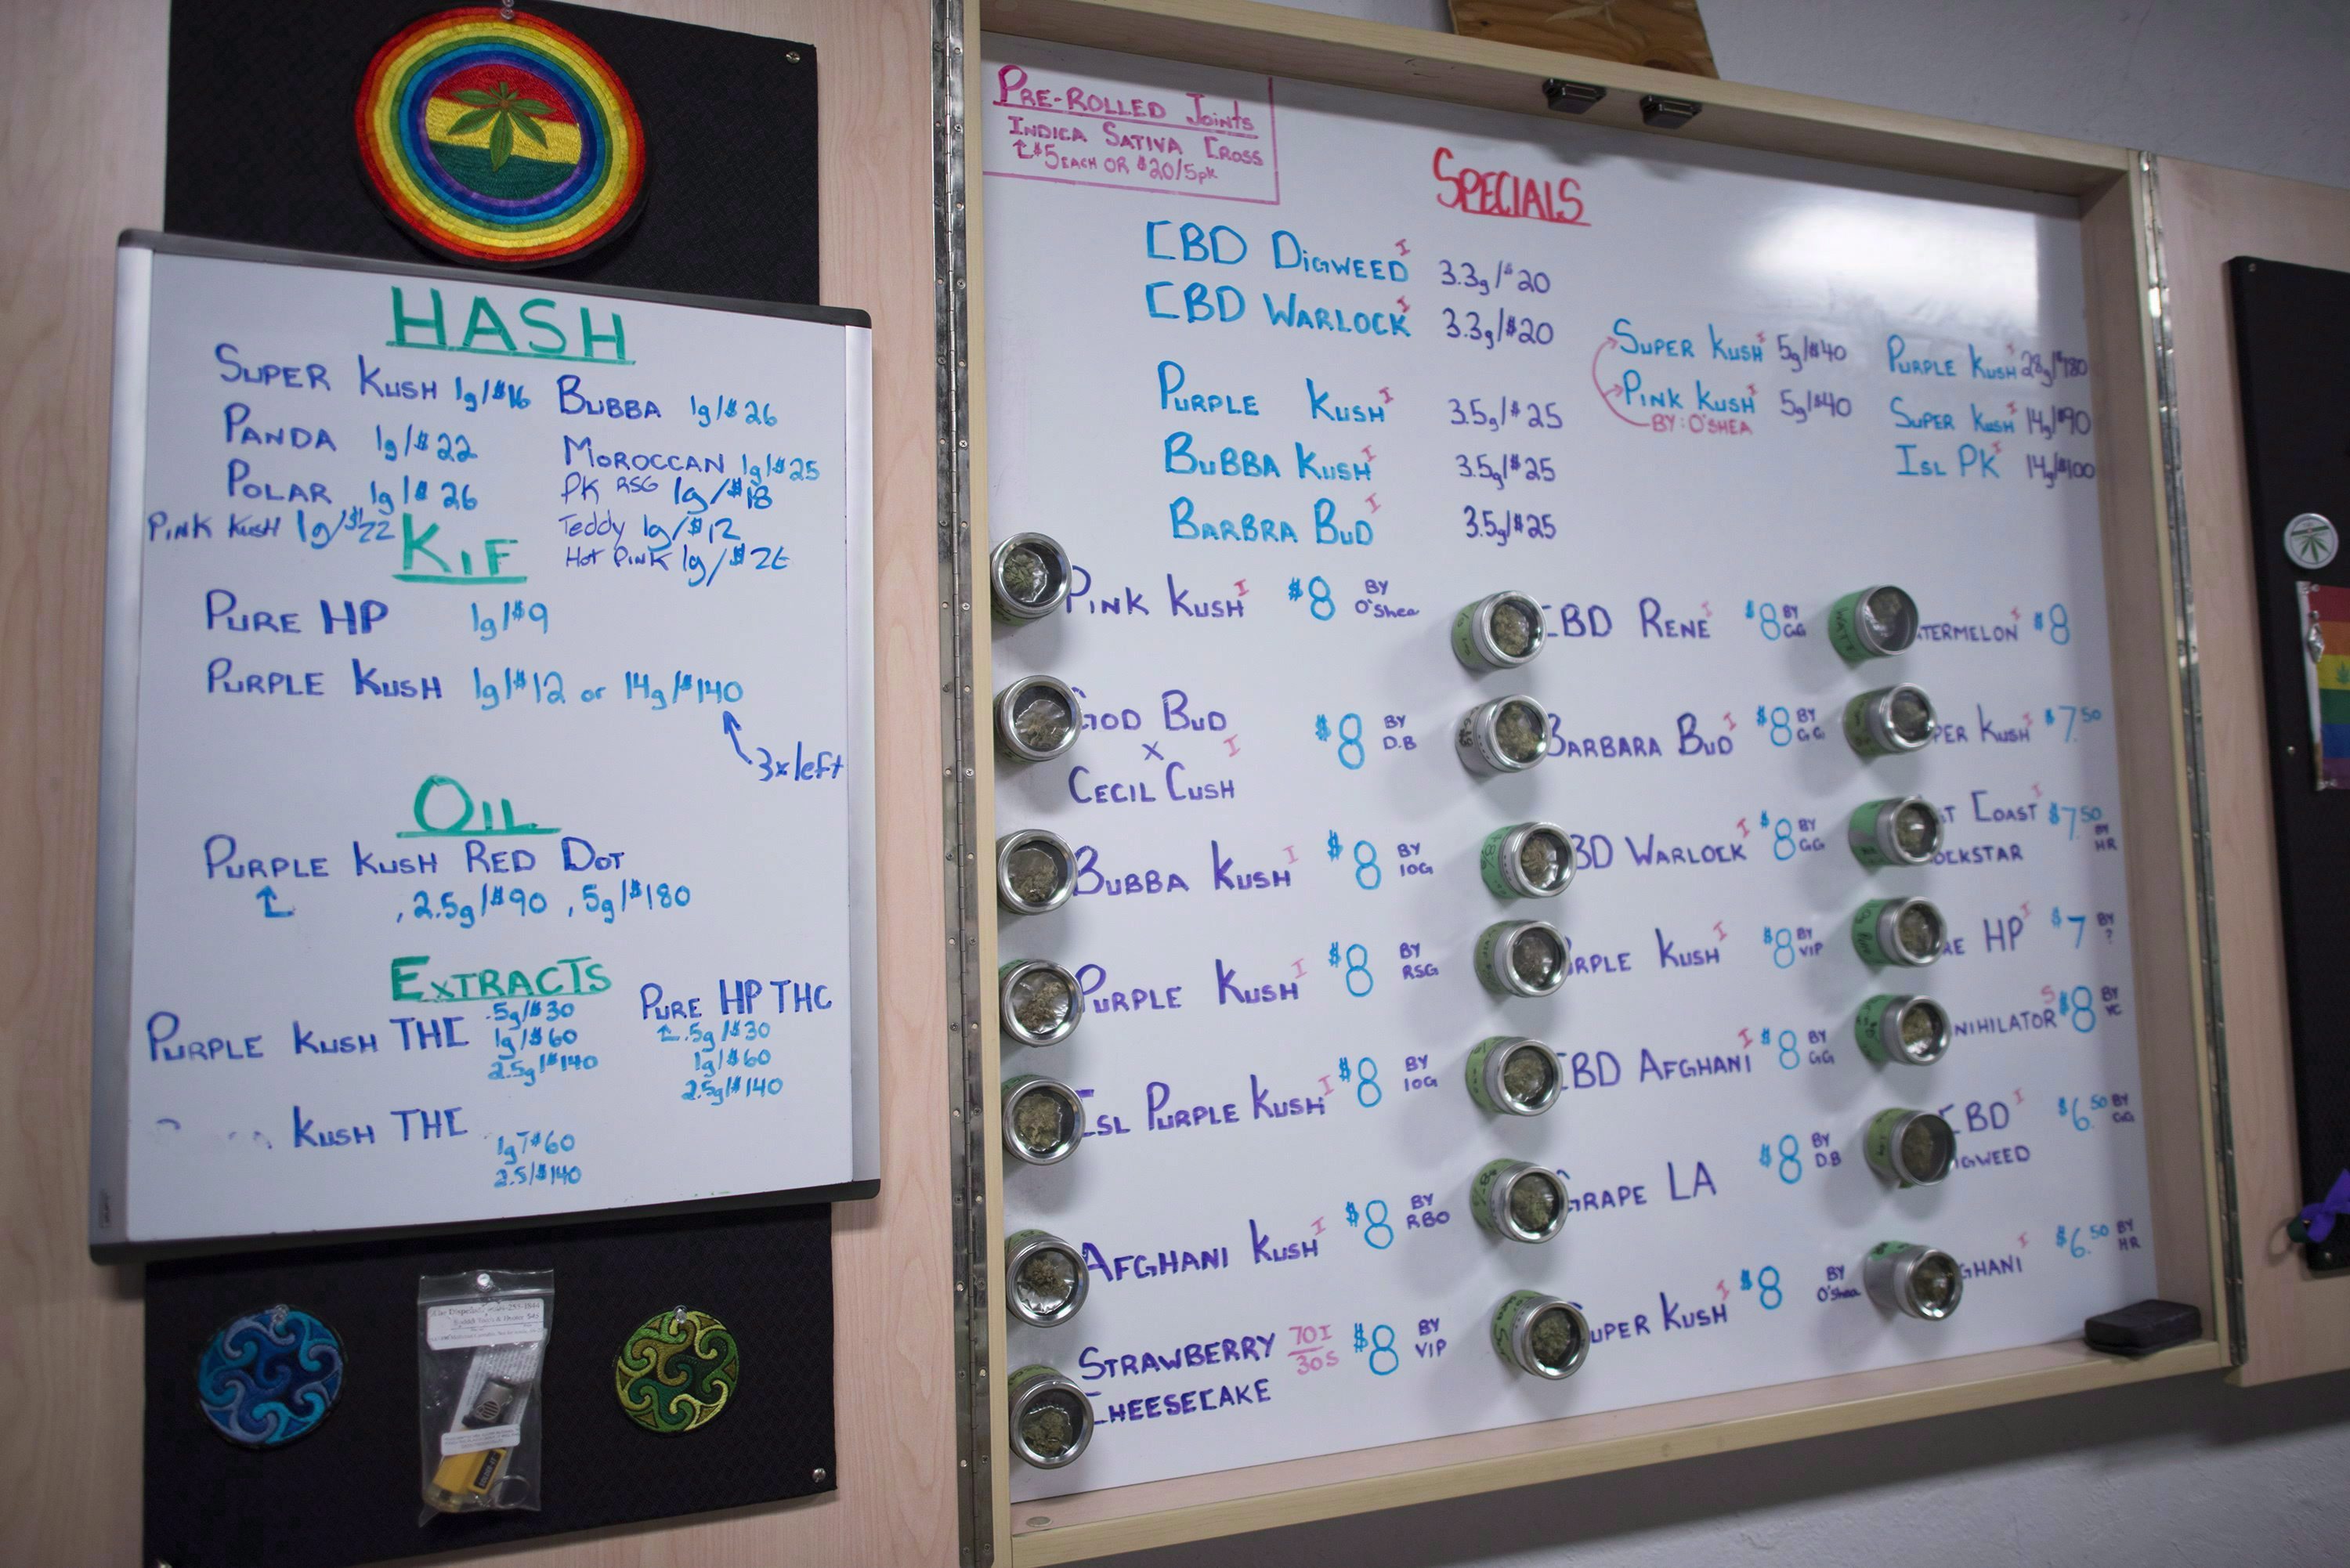 HASH
SUPER KUSH 1g/$16
PANDA 1g/$22
POLAR 1g/$26
PINK KUSH 1g/$22
BUBBA 1g/$26
MOROCCAN 1g/$25
PK RSG 1g/$18
Teddy 1g/$12
HOT PINK 1g/$26
KIF
PURE HP 1g/$9
PURPLE KUSH 1g/$12 or 14g/$140
3x left
OIL
PURPLE KUSH RED DOT
, 2.5g/$90 , 5g/$180
EXTRACTS
PURPLE KUSH THC .5g/$30
1g/$60
2.5g/$140
PURE HP THC
.5g/$30
1g/$60
2.5g/$140
KUSH THC
1g/$60
2.5/$140
PRE-ROLLED JOINTS
INDICA SATIVA CROSS
$5 EACH OR $20/5pk
SPECIALS
CBD DIGWEED I 3.3g/$20
CBD WARLOCK I 3.3g/$20
PURPLE KUSH I 3.5g/$25
BUBBA KUSH I 3.5g/$25
BARBRA BUD I 3.5g/$25
SUPER KUSH I 5g/$40
PINK KUSH I 5g/$40
BY: O'SHEA
PURPLE KUSH I 28g/$180
SUPER KUSH I 14g/$90
ISL PK I 14g/$100
PINK KUSH I $8 BY O'Shea
GOD BUD
X
CECIL CUSH I $8 BY D.B
BUBBA KUSH I $8 BY IOG
PURPLE KUSH I $8 BY RSG
ISL PURPLE KUSH I $8 BY IOG
AFGHANI KUSH I $8 BY RBO
STRAWBERRY 70I
30S $8 BY VIP
CHEESECAKE
CBD RENE I $8 BY GG
BARBARA BUD I $8 BY G.G.
BD WARLOCK I $8 BY GG
RPLE KUSH I $8 BY VIP
CBD AFGHANI I $8 BY GG
GRAPE LA $8 BY D.B
UPER KUSH I $8 BY O'Shea
TERMELON I $8
PER KUSH I $7.50
ST COAST I $7.50 BY HR
OCKSTAR
RE HP I $7 BY ?
NIHILATOR S $8 BY YC
CBD I $6.50 BY GG
IGWEED
GHANI I $6.50 BY HR